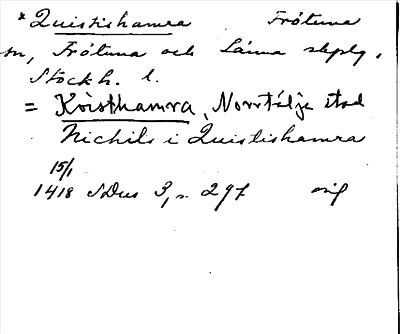 * Quistishamra Frötuna
sn, Frötuna och Länna skplg,
Stockh. l.
= Kvisthamra, Norrtälje stad
Nichils i Quistishamra
15/1
1418 SDns 3, s. 297 orig